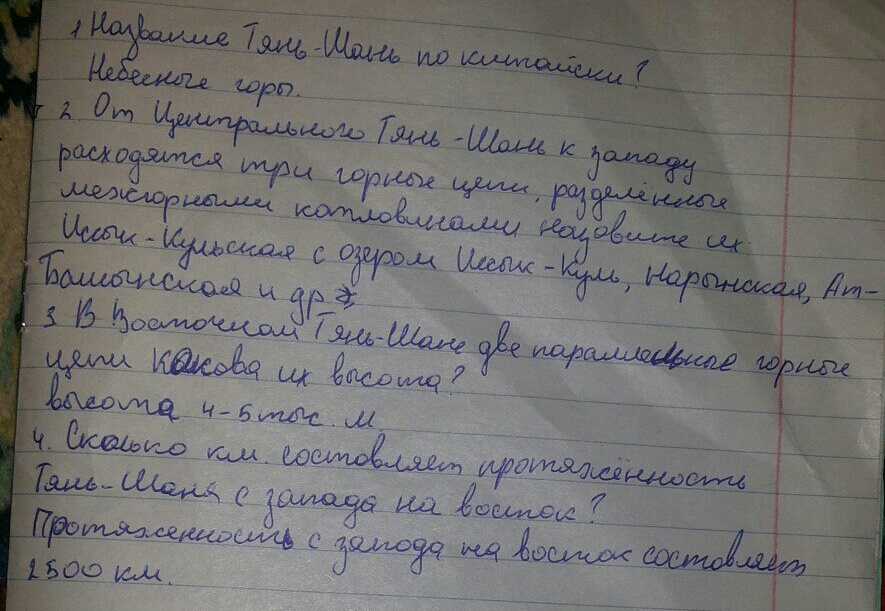 1 Название Тянь-Шань по китайски?
Небесные горы.
2. От Центрального Тянь-Шань к западу
расходятся три горные цепи, разделённые
межгорными котловинами назовите их
Иссык-Кульская с озером Иссык-Куль, Нарынская, Ат-
Башынская и др
3 В Восточном Тянь-Шане две параллельные горные
цепи Какова их высота?
высота 4-5 тыс. м.
4. Сколько км. составляет протяжённость
Тянь-Шаня с запада на восток?
Протяженность с запода на восток составляет
2500 км.